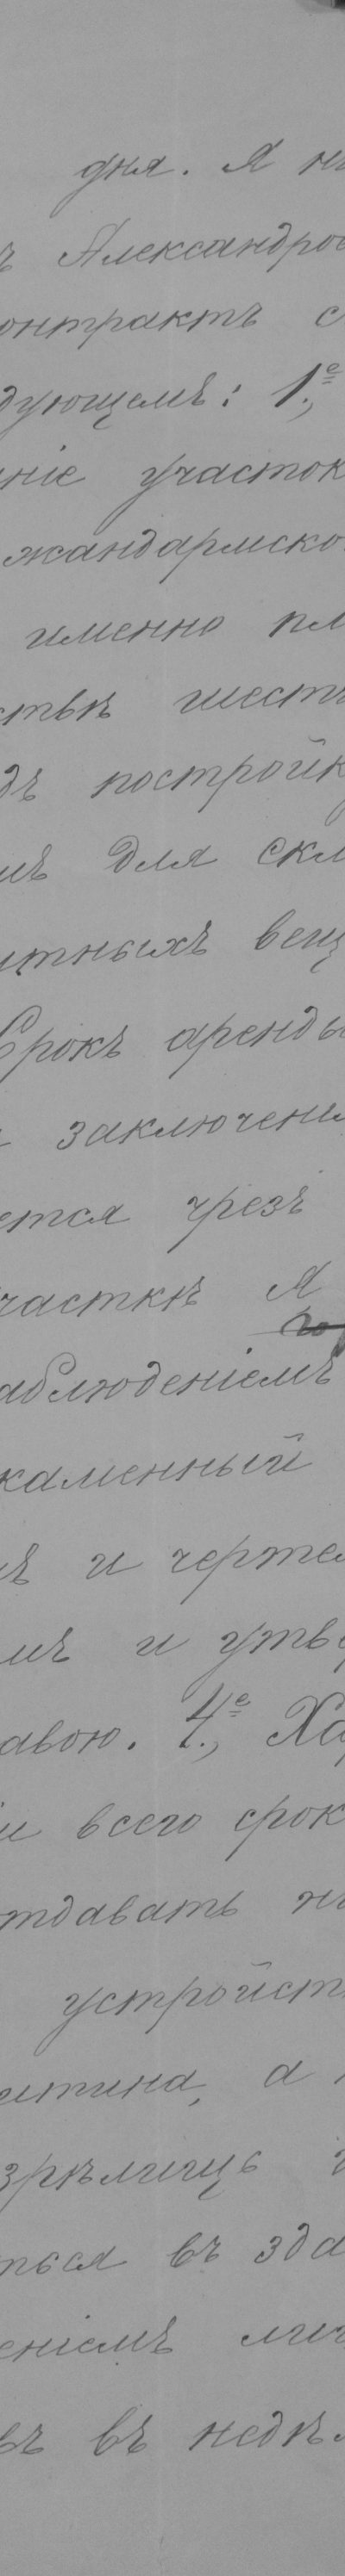 дня. Я ни
ъ Александров
онтрактъ с
дующемъ: 1.е,
ніе участок
жандармско
именно пл
ствѣ шесть
дъ постройк
мъ для скл
итныхъ вещ
Срокъ аренды
заключені
ется чрезъ
часткѣ Я
аблюденіемъ
каменный
ъ и чертеж
мъ и утвер
авою. 4.е, Хар
іи всего срок
тдавать н
устройст
итина, а
зрѣлищъ
ться въ зда
еніемъ лич
въ въ недѣл